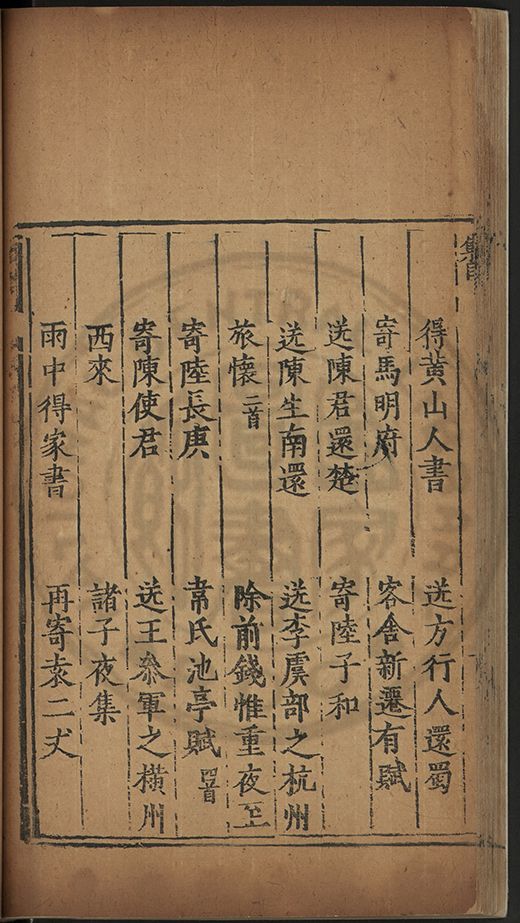 得黃山人書　送方行人還蜀
寄馬明府　客舍新遷有賦
送陳君還楚　寄陸子和
送陳生南還　送李虞部之杭州
旅懷二首　除前錢惟重夜至
寄陸長庚　韋氏池亭賦四首
寄陳使君　送王參軍之橫州
西來　諸子夜集
雨中得家書　再寄袁二丈